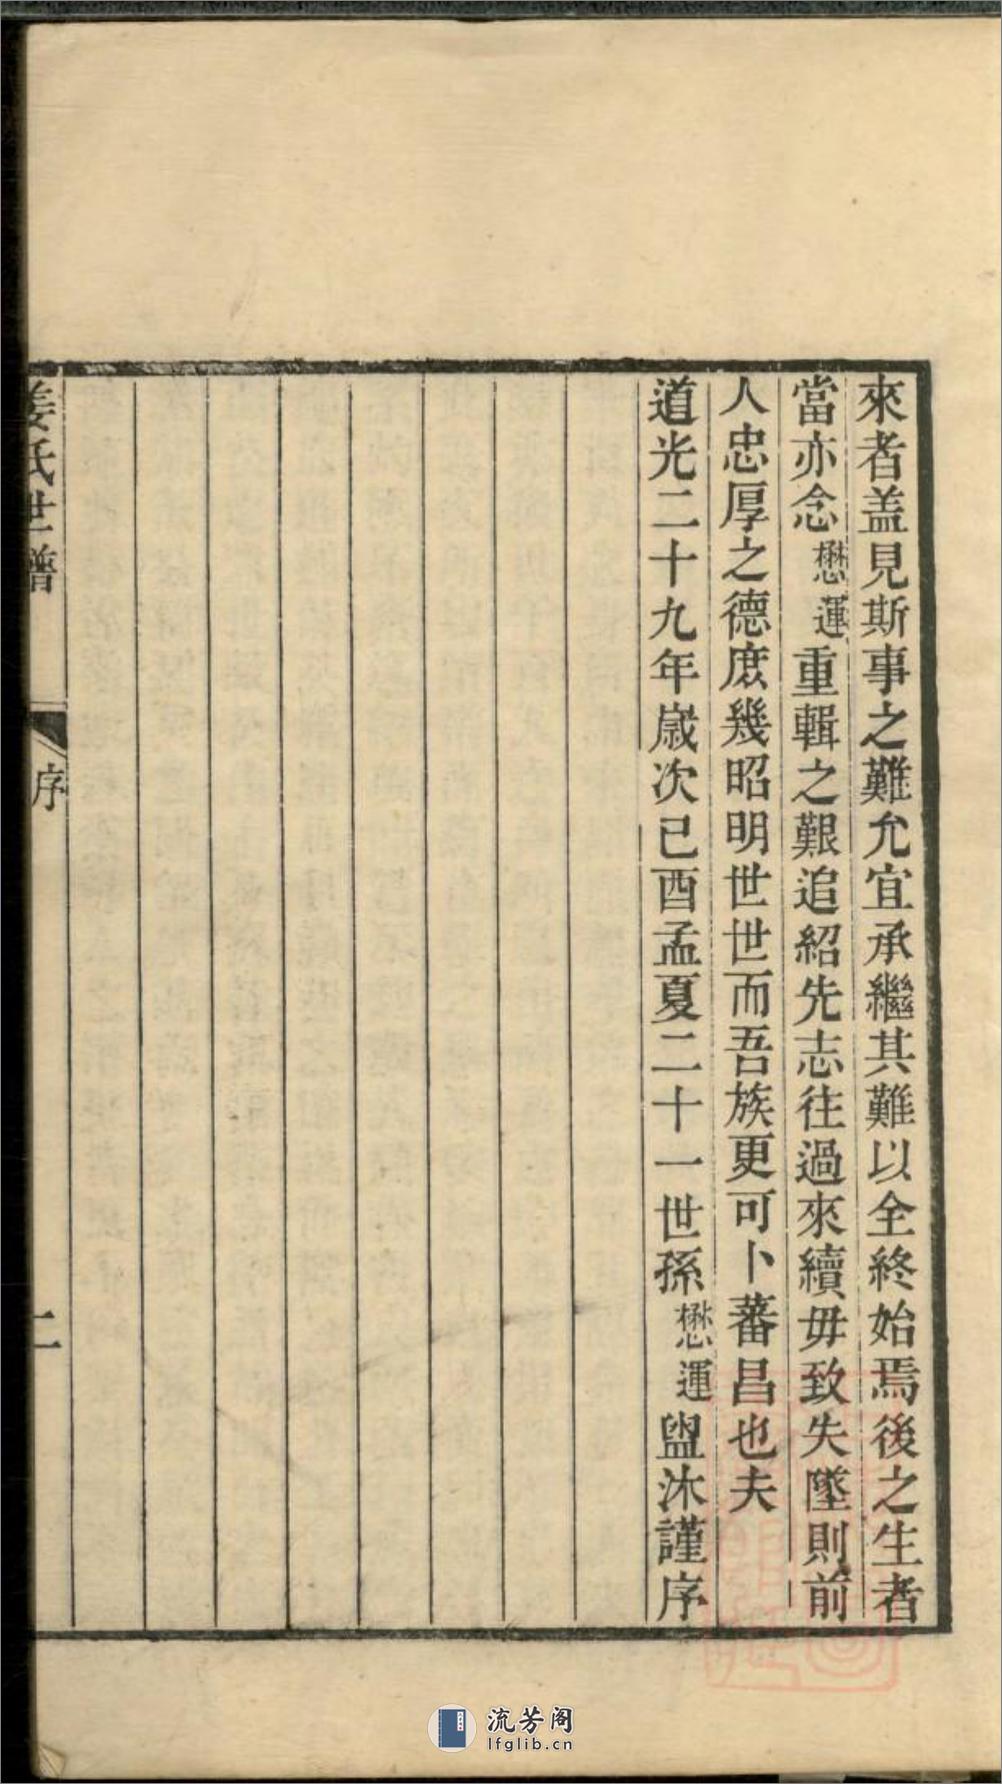 來者盖見斯事之難允宜承繼其難以全終始焉後之生者
當亦念懋運重輯之艱追紹先志往過來續毋致失墜則前
人忠厚之德庶幾昭明世世而吾族更可卜蕃昌也夫
道光二十九年歲次己酉孟夏二十一世孫懋運盥沐謹序
姜氏世譜 序 二
流芳阁
lfglib.cn